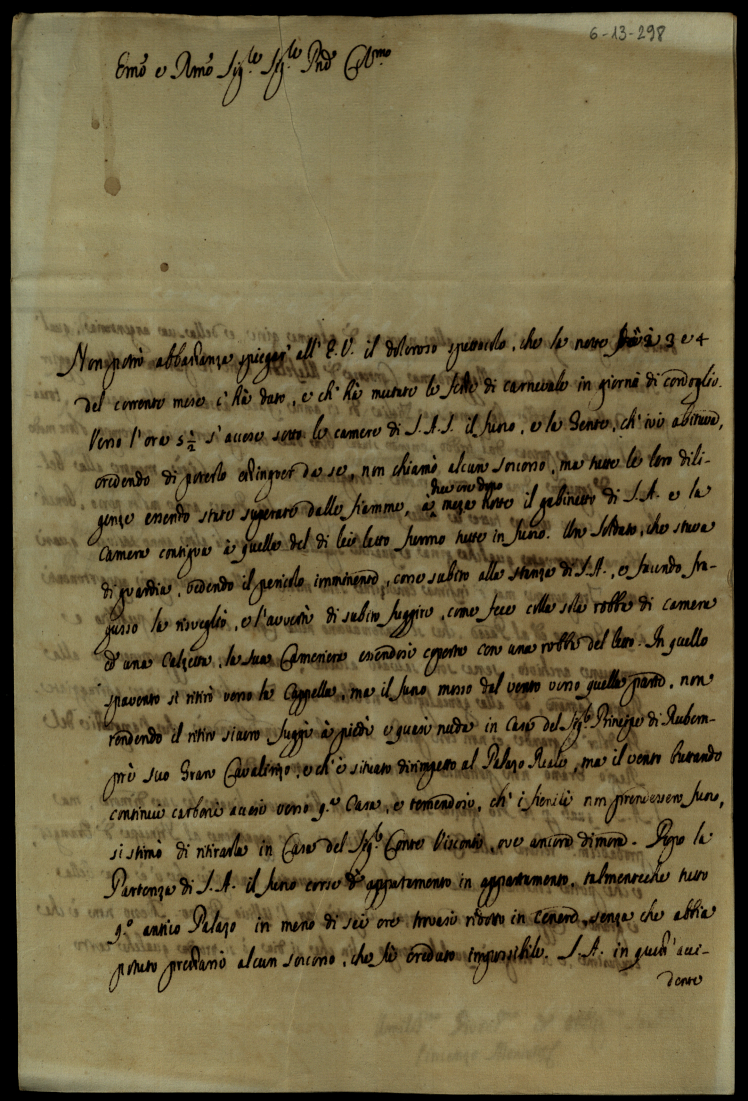 6-13-298
Emo e Rmo Sig.le Sig.le Pnd Colmo
Non potrò abbastanza spiegar' all' E.V. il doloroso spettacolo, che la notte 3 e 4
del corrente mese c'hà dato, e ch' hà mutato le feste di carnevale in giorni di cordoglio.
Verso l'ore 5½ s'accese sotto le camere di S.A.S. il fuoco, e la Gente, ch' ivi abitava,
credendo di poterlo estinguer da se, non chiamò alcun soccorso, ma tutte le loro dili-
due ore dopo
genze essendo state superate dalle fiamme, à meza notte il gabinetto di S.A. e la
camera contigua à quella del di lei letto furono tutte in fuoco. Un Soldato, che stava
di guardia, vedendo il pericolo imminente, corse subito alle stanze di S.A., e facendo fra-
gasso la risvegliò, e l'avvertì di subito fuggire, come fece colla sola robba di camera
ed una Calzetta, la sua Cameriera essendosi coperta con una robba del letto. In quello
spavento si ritirò verso la Cappella, ma il fuoco mosso dal vento verso quella parte, non
rendendo il ritiro sicuro fuggì à piedi e quasi nuda in Casa del Sig.re Principe di Rubem-
prè suo Gran Cavalirizo, e ch'è situata dirimpetto al Palazo Reale, ma il vento buttando
continui carboni accesi verso q.ta Casa, e temendosi, ch' i fienili non prendessero fuoco,
si stimò di ritirarla in Casa del Sig.re Conte Visconti, ove ancora dimora. Dopo la
Partenza di S.A. il fuoco corse d'appartamento in appartamento, talmenteche tutto
q.o antico Palazo in meno di sei ore trovasi ridotto in cenere, senza che abbia
potuto prestarsi alcun soccorso, che si è creduto impossibile. S.A. in quest' acci-
dente